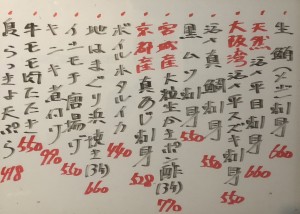 生鮪刺身 660
天然活〆平目刺身 660
大阪湾活〆平スズキ刺身 550
活〆真鯛刺身 550
黒ムツ刺身 550
宮城産大粒生ガキポン酢(3ヶ) 770
京都産真あじ刺身 528
ボイルホタルイカ 440
地はまぐり浜焼き(3ヶ) 660
唐揚げ 550
キンキ煮付け 770
牛モモ肉たたき 550
島らっきょ天ぷら 418